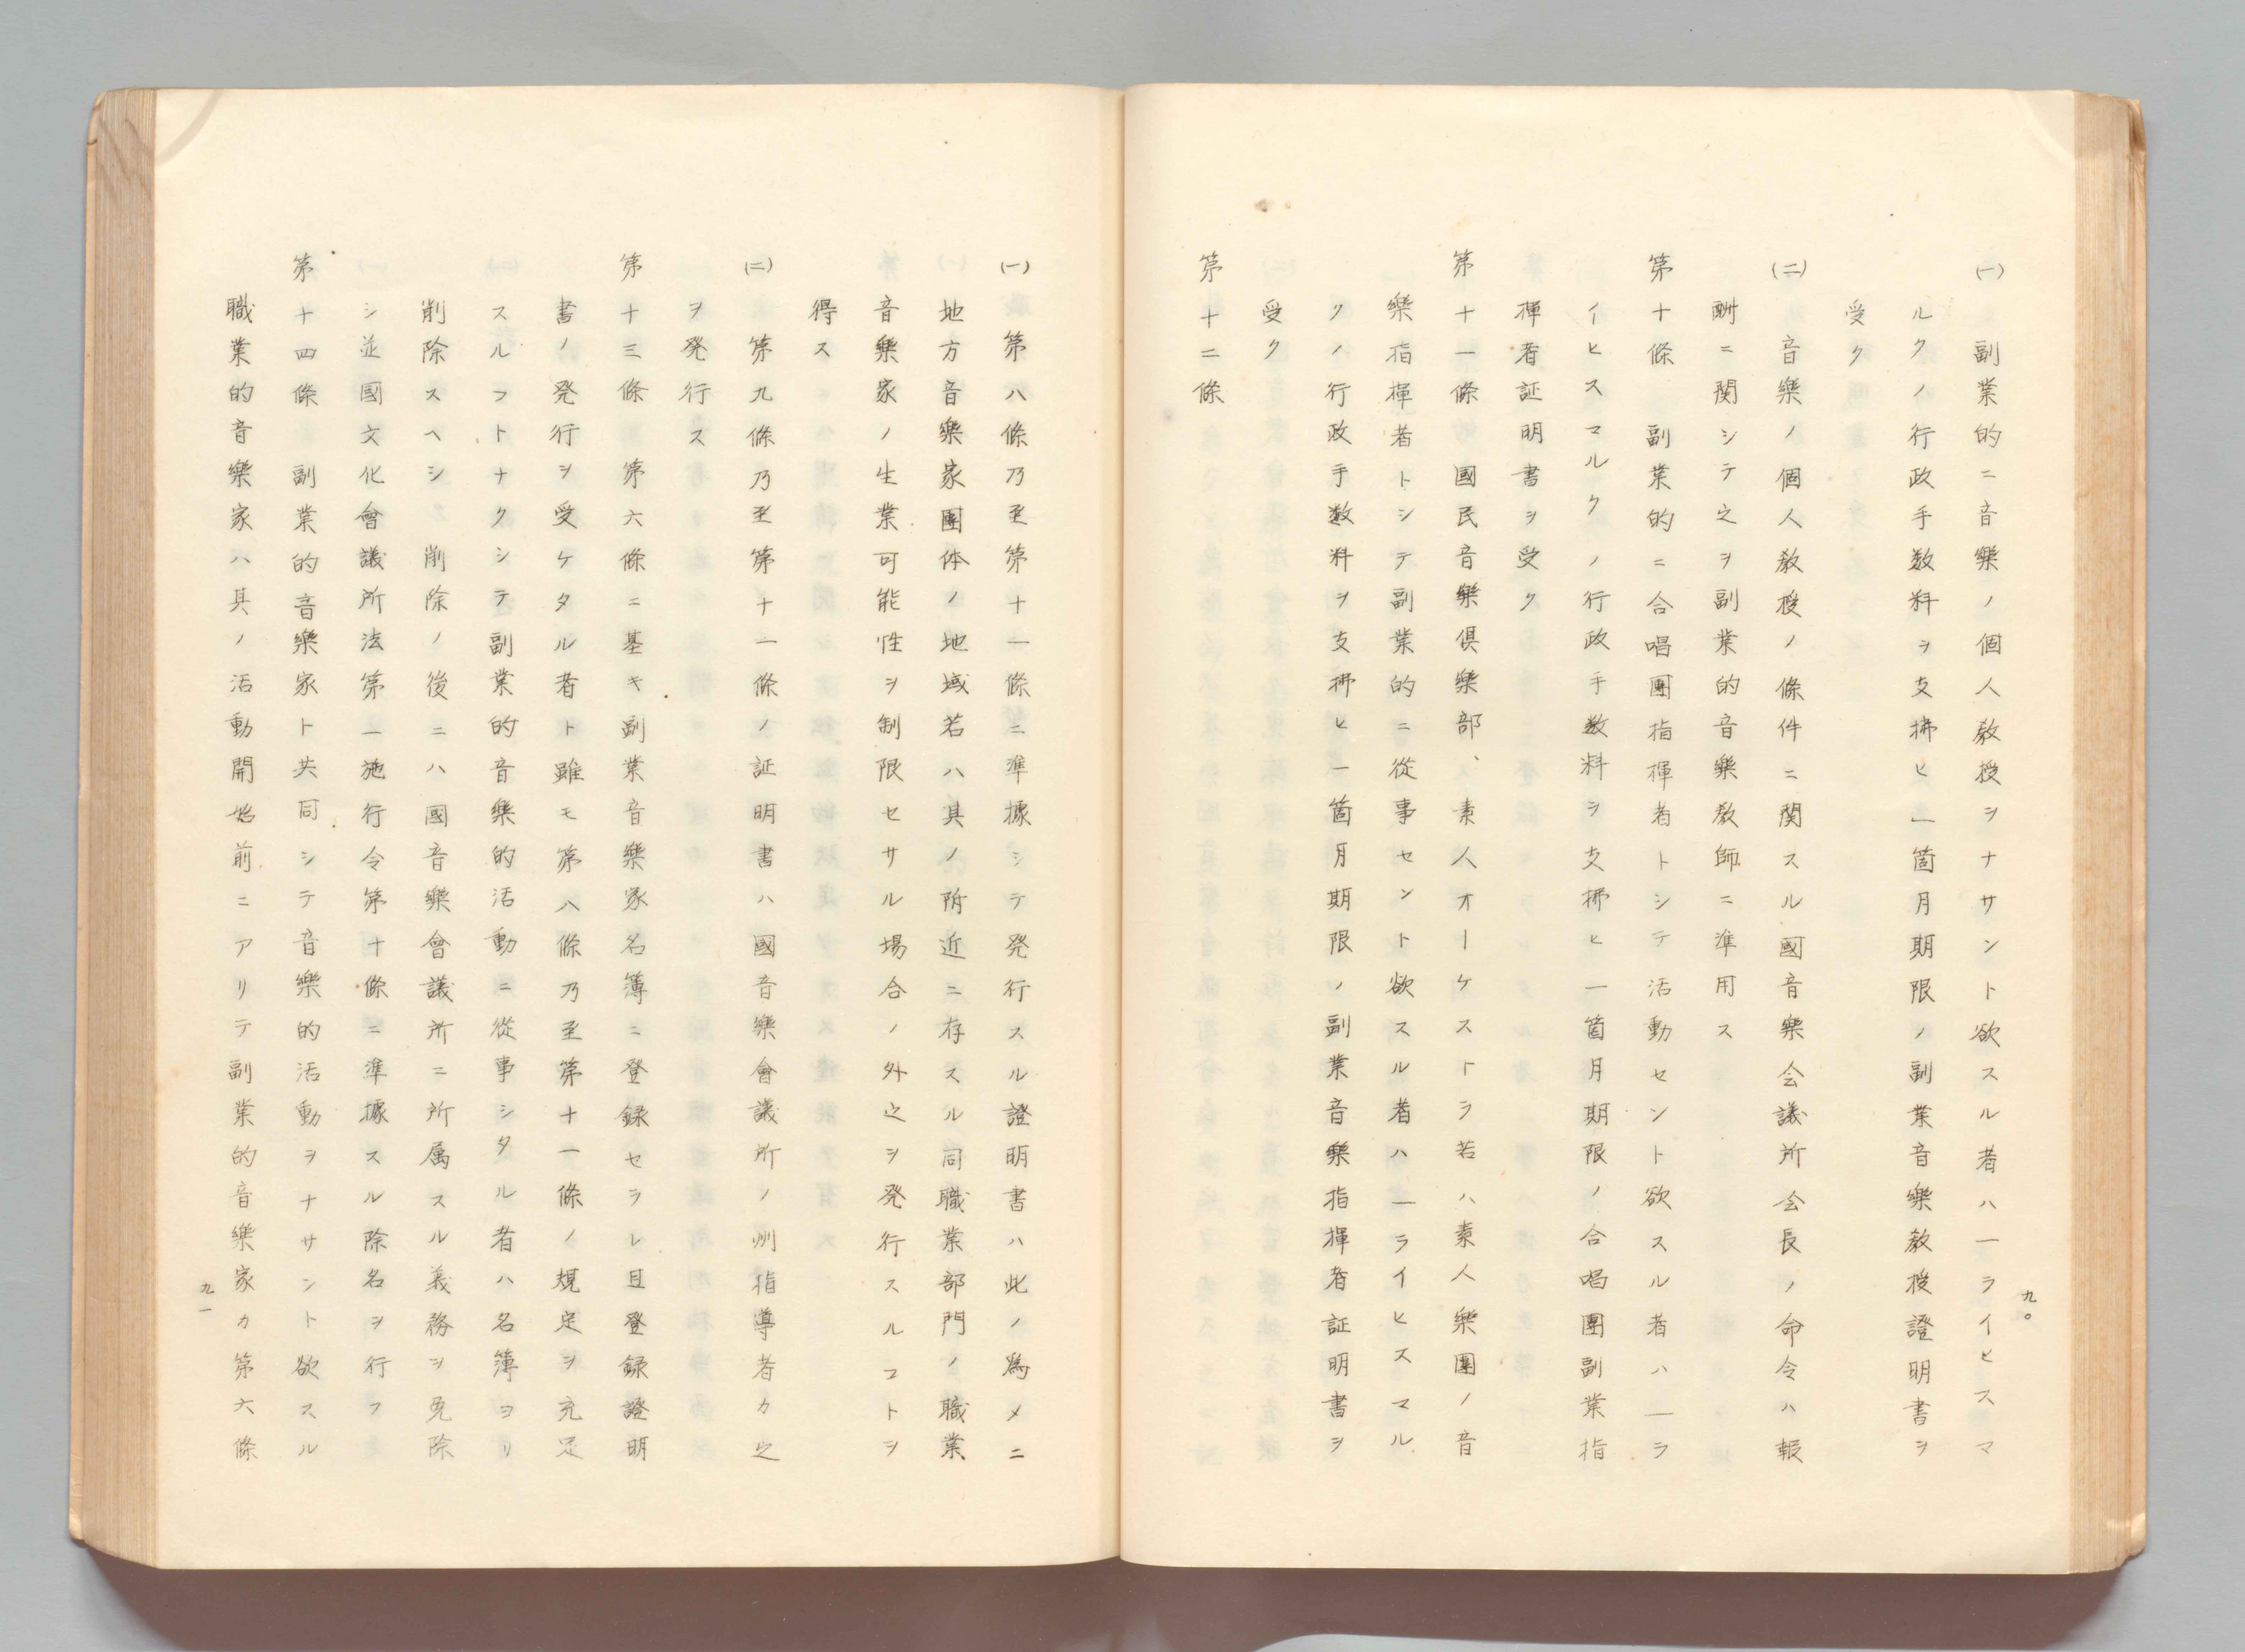 (一) 副業的ニ音樂ノ個人教授ヲナサント欲スル者ハ一ライヒスマ
ルクノ行政手数料ヲ支拂ヒ一箇月期限ノ副業音樂教授證明書ヲ
受ク
(二) 音樂ノ個人教授ノ條件ニ関スル國音樂会議所会長ノ命令ハ報
酬ニ関シテ之ヲ副業的音樂教師ニ準用ス
第十條 副業的ニ合唱團指揮者トシテ活動セント欲スル者ハ一ラ
イヒスマルクノ行政手数料ヲ支拂ヒ一箇月期限ノ合唱團副業指
揮者証明書ヲ受ク
第十一條 國民音樂倶樂部、素人オーケストラ若ハ素人樂團ノ音
樂指揮者トシテ副業的ニ從事セント欲スル者ハ一ライヒスマル
クノ行政手数料ヲ支拂ヒ一箇月期限ノ副業音樂指揮者証明書ヲ
受ク
第十二條
九〇
(一) 第八條乃至第十一條ニ準據シテ発行スル證明書ハ此ノ爲メニ
地方音樂家團体ノ地域若ハ其ノ附近ニ存スル同職業部門ノ職業
音樂家ノ生業可能性ヲ制限セサル場合ノ外之ヲ発行スルコトヲ
得ス
(二) 第九條乃至第十一條ノ証明書ハ國音樂會議所ノ州指導者カ之
ヲ発行ス
第十三條 第六條ニ基キ副業音樂家名簿ニ登録セラレ且登録證明
書ノ発行ヲ受ケタル者ト雖モ第八條乃至第十一條ノ規定ヲ充足
スルコトナクシテ副業的音樂的活動ニ從事シタル者ハ名簿ヨリ
削除スヘシ 削除ノ後ニハ國音樂會議所ニ所属スル義務ヲ免除
シ並國文化會議所法第一施行令第十條ニ準據スル除名ヲ行フ
第十四條 副業的音樂家ト共同シテ音樂的活動ヲナサント欲スル
職業的音樂家ハ其ノ活動開始前ニアリテ副業的音樂家カ第六條
九一